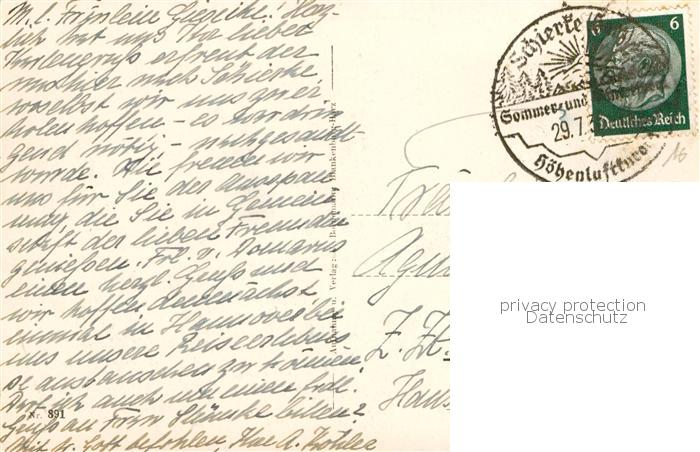 M. l. Fräulein Gericke! Herz-
lich hat uns Ihr lieber
Feriengruß erfreut der
uns hier nach Schierke,
woselbst wir uns zu er-
holen hoffen - es tat drin-
gend nötig - nachgesandt
wurde. Wir freuen uns
uns für Sie der Ausspan-
nung die Sie in Gemein-
schaft der lieben Freundin
genießen. Frl. v. Domarus
einen herzl. Gruß und
wir hoffen demnächst
einmal in Hannover bei
uns unsere Reiseerlebnis-
se austauschen zu können.
Darf ich auch um einen frdl.
Gruß an Frau bitten?
Mit Gott befohlen, Ihre A. Köhler
Nr. 891
Blankenburg-Harz
Schierke
Sommer- und
29.7.3
Höhenluftkurort
6
6
Deutsches Reich
Fräu
Agn
Z. Zt.
Han
16
privacy protection
Datenschutz